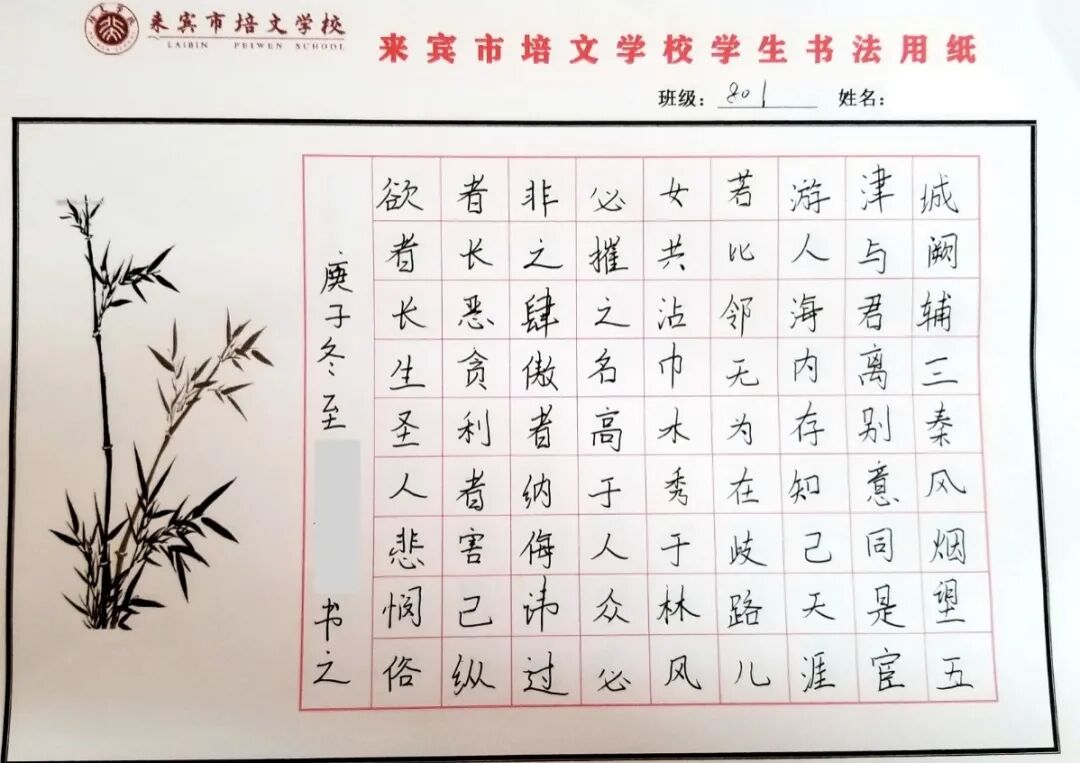 来宾市培文学校
LAIBIN PEIWEN SCHOOL
来宾市培文学校学生书法用纸
班级：801 姓名：
城阙辅三秦风烟望五
津与君离别意同是宦
游人海内存知己天涯
若比邻无为在歧路儿
女共沾巾木秀于林风
必摧之名高于人众必
非之肆傲者纳侮讳过
者长恶贪利者害己纵
欲者长生圣人悲悯俗
庚子冬至 书之